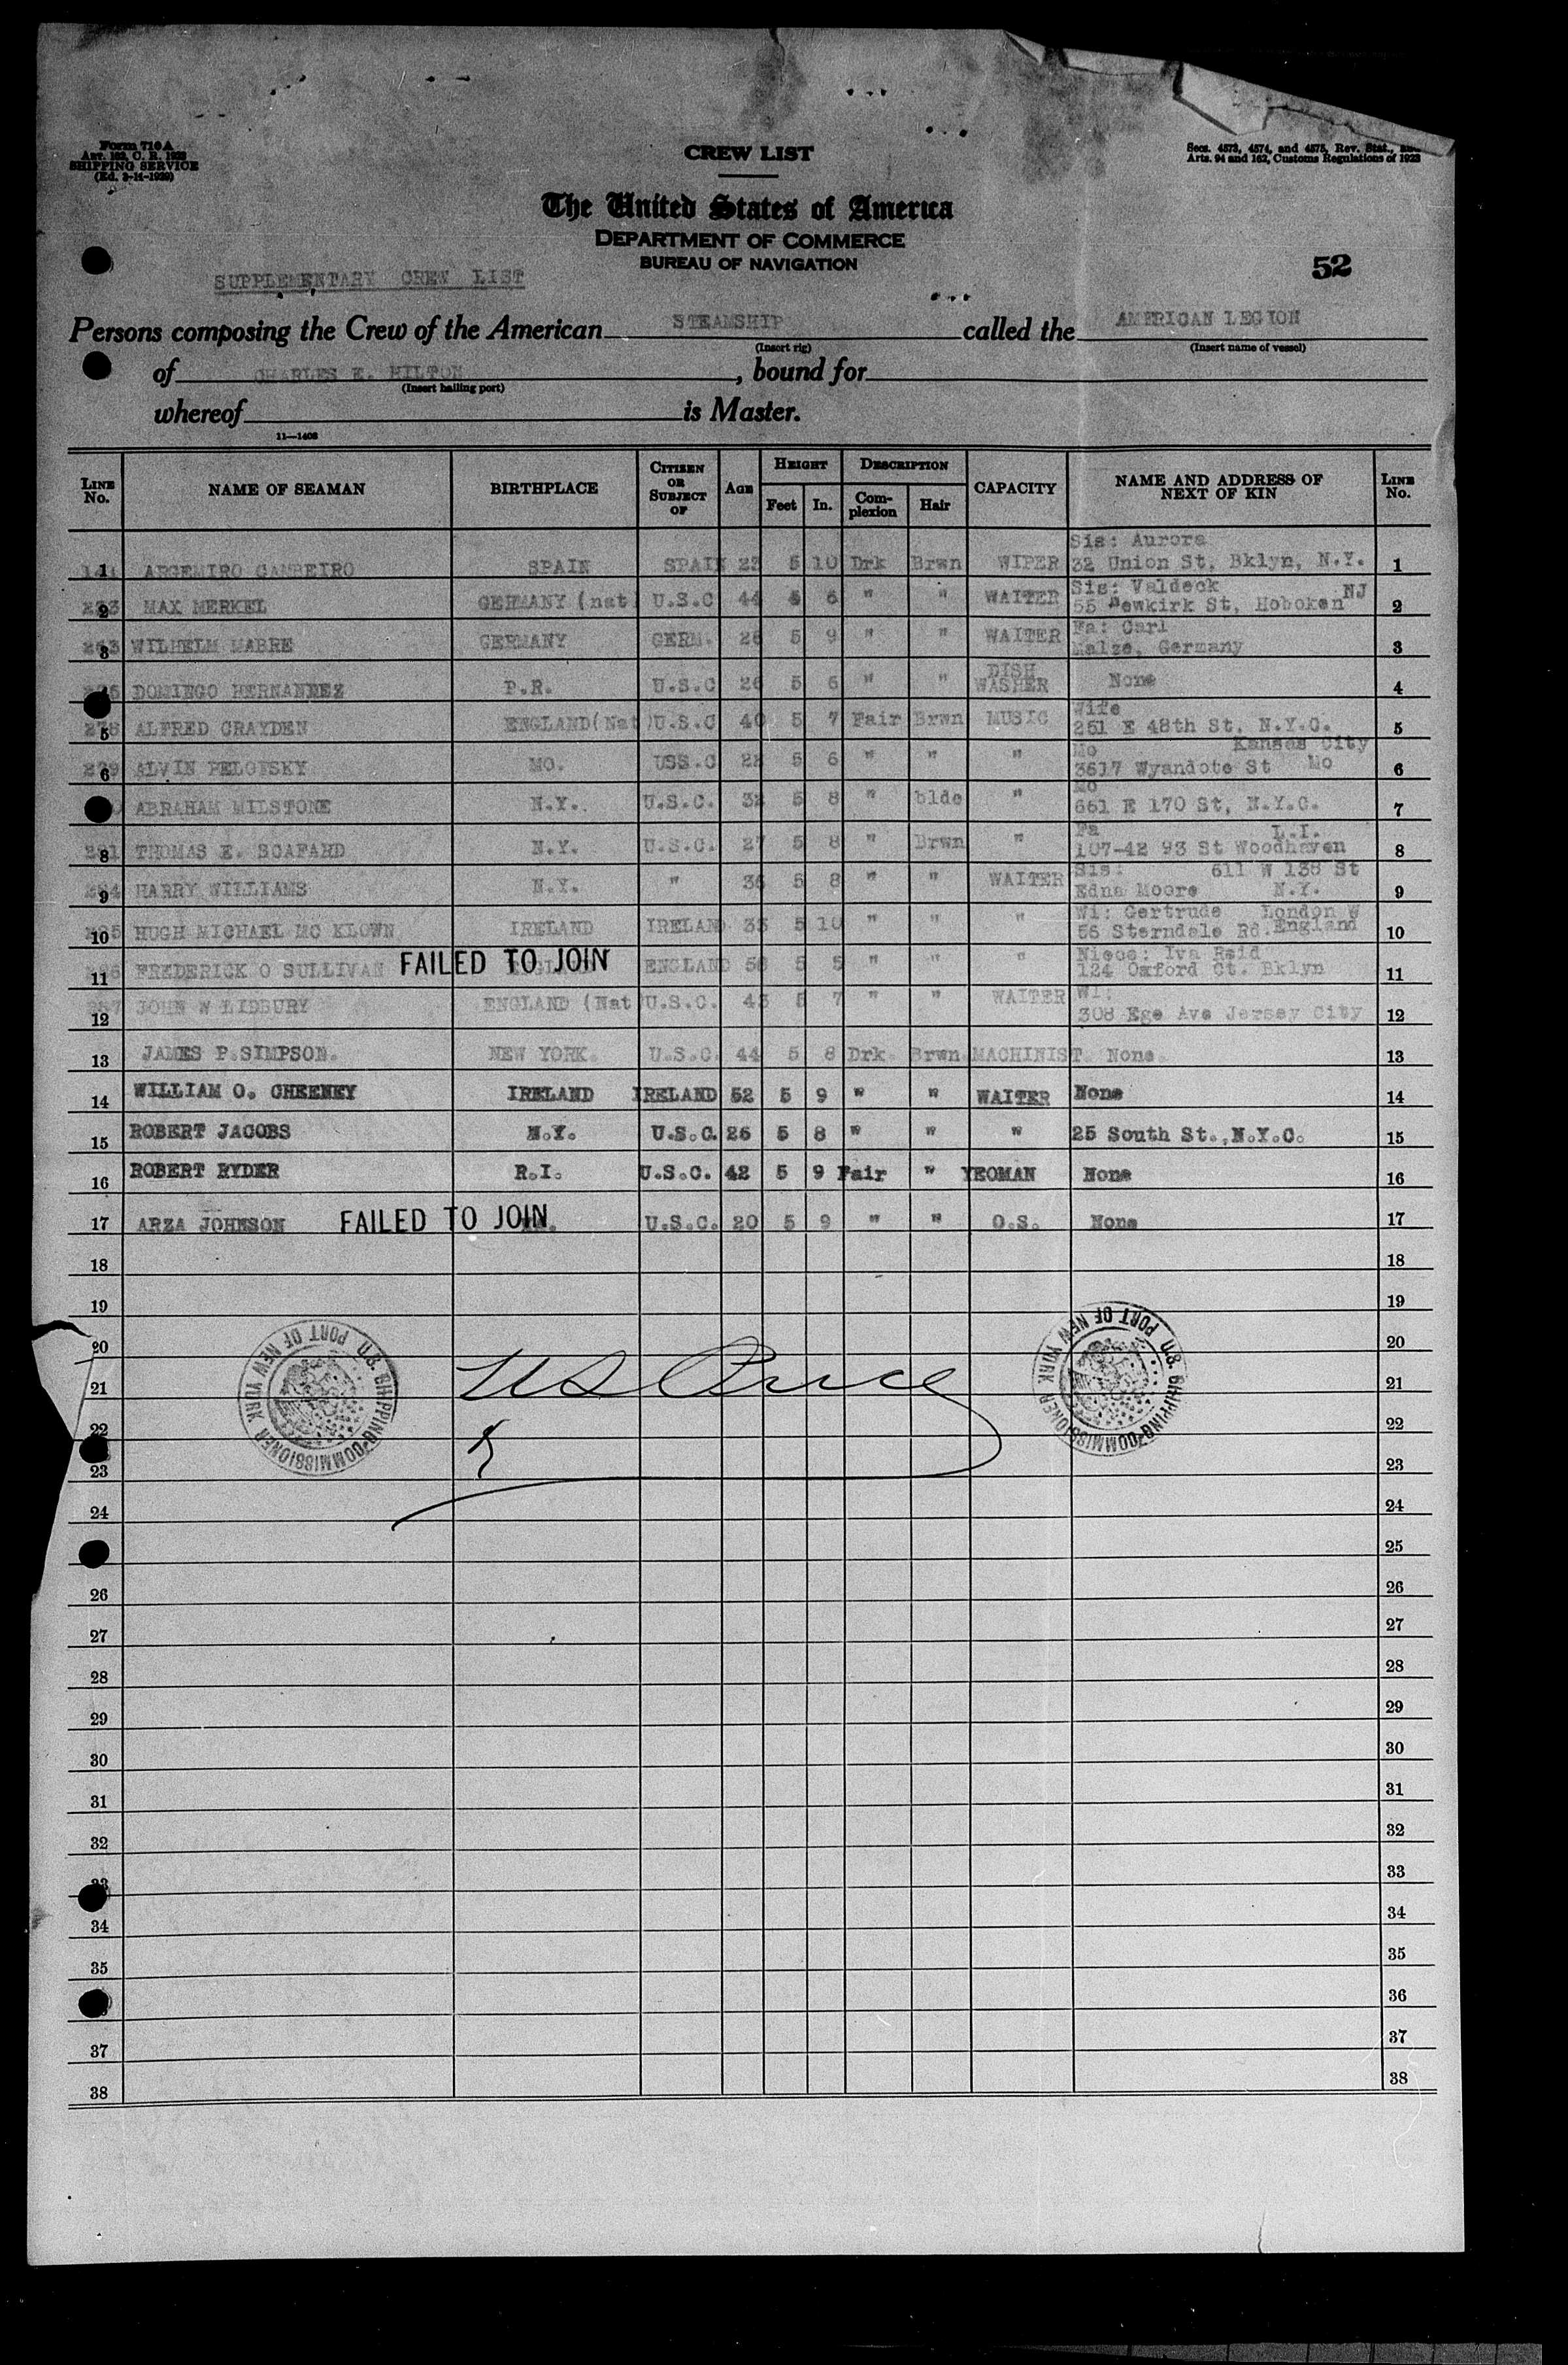 Form 710A
Art. 162, C. R. 1923
SHIPPING SERVICE
(Ed. 3-14-1929)
CREW LIST
Secs. 4573, 4574, and 4575, Rev. Stat., and
Arts. 94 and 162, Customs Regulations of 1923
The United States of America
DEPARTMENT OF COMMERCE
BUREAU OF NAVIGATION
52
SUPPLEMENTARY CREW LIST
Persons composing the Crew of the American STEAMSHIP called the AMERICAN LEGION
(Insert rig) (Insert name of vessel)
of CHARLES E. HILTON, bound for
(Insert hailing port)
whereof is Master.
11—1408
LINE No. NAME OF SEAMAN BIRTHPLACE CITIZEN OR SUBJECT OF AGE HEIGHT Feet In. DESCRIPTION Complexion Hair CAPACITY NAME AND ADDRESS OF NEXT OF KIN LINE No.
1 ARGEMIRO CAMBEIRO SPAIN SPAIN 23 5 10 Drk Brwn WIPER Sis: Aurora 32 Union St, Bklyn, N.Y. 1
2 MAX MERKEL GERMANY (nat) U.S.C 44 5 6 " " WAITER Sis: Valdeck 55 Newkirk St, Hoboken NJ 2
3 WILHELM MABRE GERMANY GERM. 26 5 9 " " WAITER Fa: Carl Malze, Germany 3
DOMIEGO HERNANDEZ P.R. U.S.C 26 5 6 " " DISH WASHER None 4
5 ALFRED CRAYDEN ENGLAND(Nat) U.S.C 40 5 7 Fair Brwn MUSIC Wife 251 E 48th St, N.Y.C. 5
6 ALVIN PELOFSKY MO. USS.C 22 5 6 " " " Mo Kansas City 3617 Wyandote St Mo 6
ABRAHAM MILSTONE N.Y. U.S.C. 32 5 8 " blde " Mo 661 E 170 St, N.Y.C. 7
8 THOMAS E. SCAFARD N.Y. U.S.C. 27 5 8 " Brwn " Fa L.I. 107-42 93 St Woodhaven 8
9 HARRY WILLIAMS N.Y. " 36 5 8 " " WAITER Sis: 611 W 138 St Edna Moore N.Y. 9
10 HUGH MICHAEL MC KLOWN IRELAND IRELAND 35 5 10 " " " Wi: Gertrude London W 56 Sterndale Rd. England 10
11 FREDERICK O SULLIVAN FAILED TO JOIN ENGLAND 56 5 5 " " " Niece: Iva Reid 124 Oxford Ct. Bklyn 11
12 JOHN W LIDBURY ENGLAND (Nat) U.S.C. 43 5 7 " " WAITER Wi: 308 Ege Ave Jersey City 12
13 JAMES P.SIMPSON. NEW YORK. U.S.C. 44 5 8 Drk. Brwn. MACHINIST. None. 13
14 WILLIAM O. CHEENEY IRELAND IRELAND 52 5 9 " " WAITER None 14
15 ROBERT JACOBS N.Y. U.S.C. 26 5 8 " " " 25 South St.,N.Y.C. 15
16 ROBERT RYDER R.I. U.S.C. 42 5 9 Fair " YEOMAN None 16
17 ARZA JOHNSON FAILED TO JOIN U.S.C. 20 5 9 " " O.S. None 17
18 18
19 19
20 20
21 21
22 22
23 23
24 24
25
26 26
27 27
28 28
29 29
30 30
31 31
32 32
33 33
34 34
35 35
36
37 37
38 38
U.S. SHIPPING COMMISSIONER PORT OF NEW YORK
U.S. SHIPPING COMMISSIONER PORT OF NEW YORK